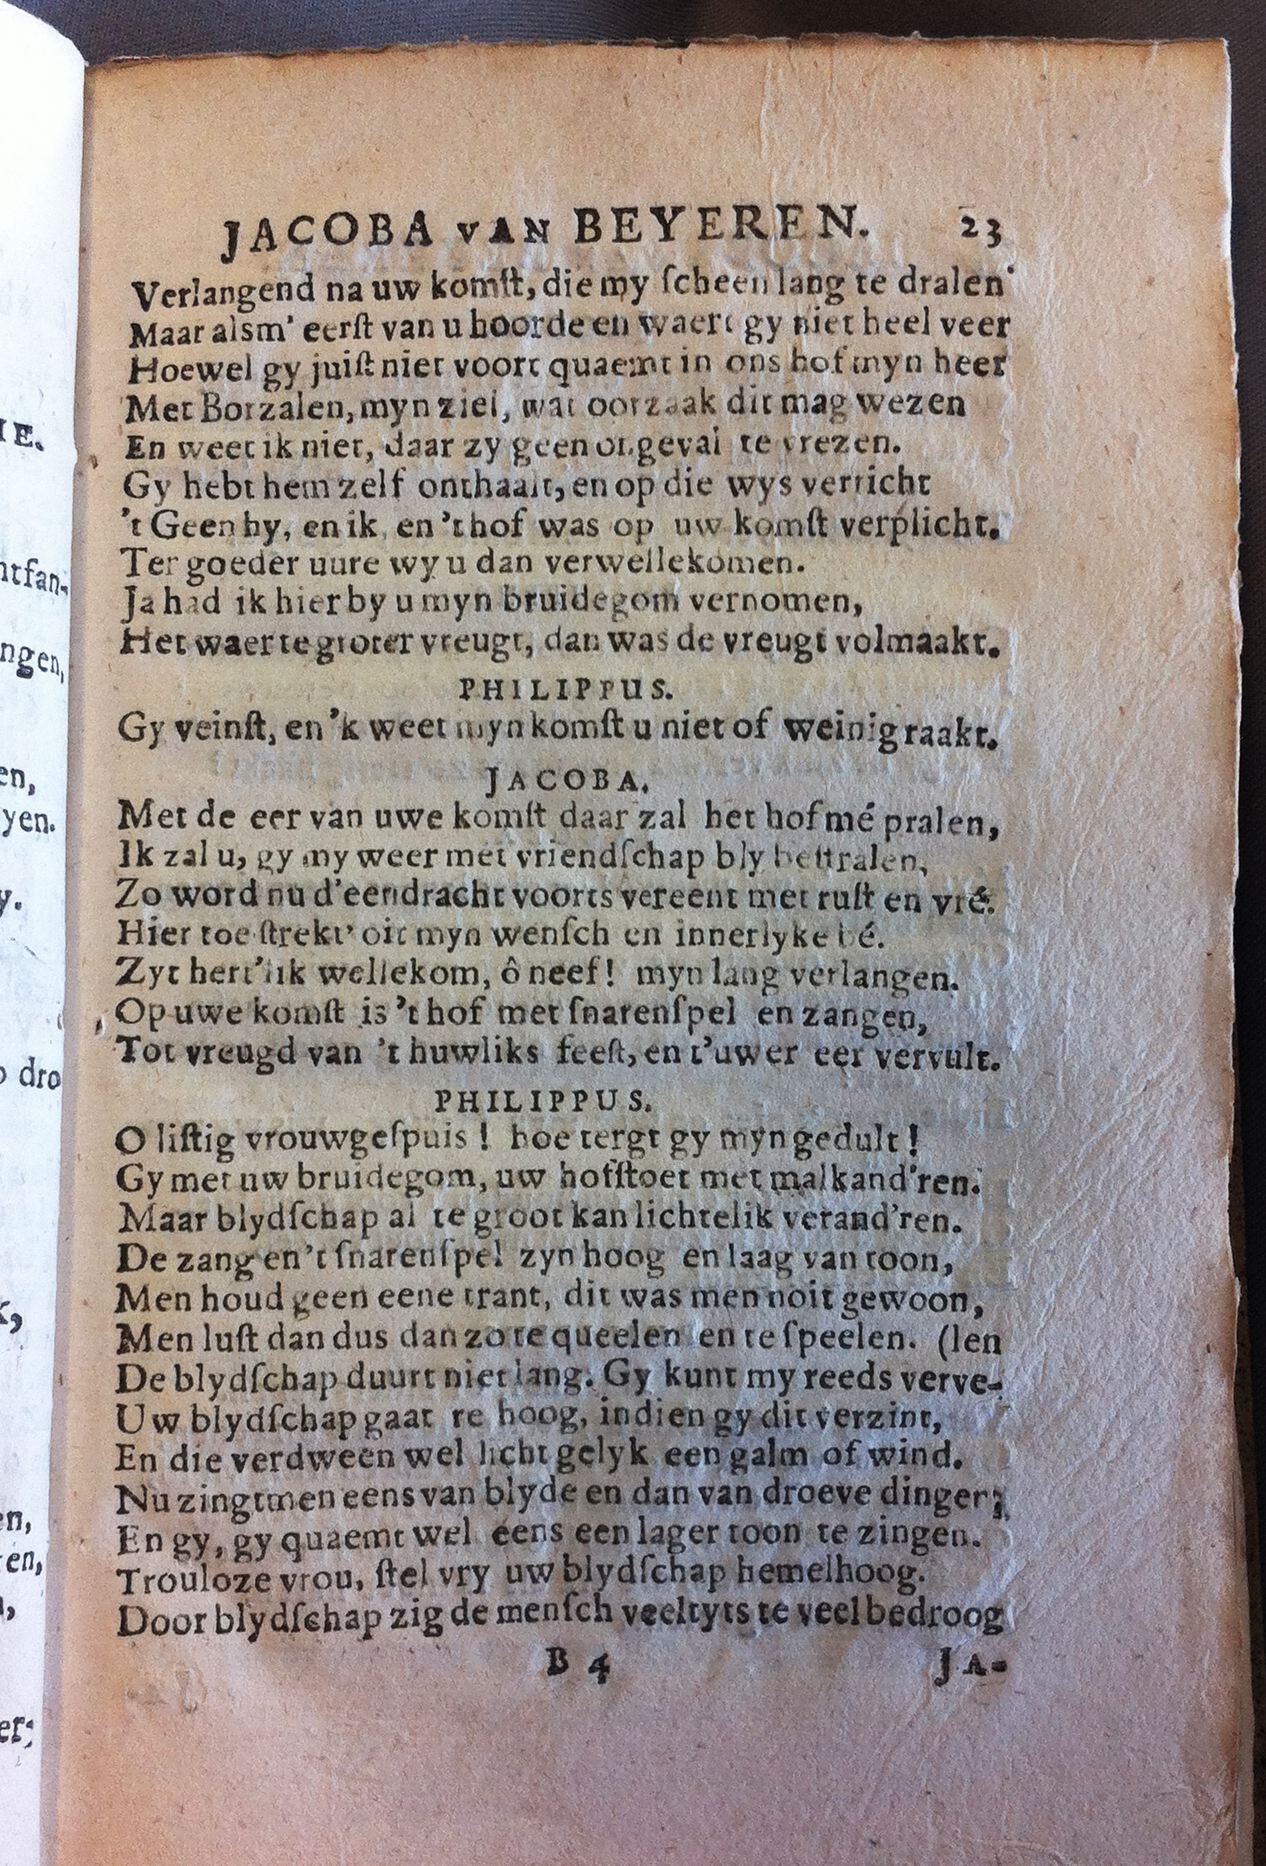 JACOBA VAN BEYEREN. 23
Verlangend na uw komſt, die my ſcheen lang te dralen
Maar alsm' eerſt van u hoorde en waert gy niet heel veer
Hoewel gy juiſt niet voort quaemt in ons hof myn heer
Met Borzalen, myn ziel, wat oorzaak dit mag wezen
En weet ik niet, daar zy geen ongeval te vrezen.
Gy hebt hem zelf onthaalt, en op die wys verricht
't Geen hy, en ik, en 't hof was op uw komſt verplicht.
Ter goeder uure wy u dan verwellekomen.
Ja had ik hier by u myn bruidegom vernomen,
Het waer te groter vreugt, dan was de vreugt volmaakt.
PHILIPPUS.
Gy veinſt, en 'k weet myn komſt u niet of weinig raakt.
JACOBA.
Met de eer van uwe komſt daar zal het hof mé pralen,
Ik zal u, gy my weer met vriendſchap bly beſtralen,
Zo word nu d'eendracht voorts vereent met ruſt en vré.
Hier toe ſtrekt' oit myn wenſch en innerlyke bé.
Zyt hert'lik wellekom, ô neef! myn lang verlangen.
Op uwe komſt is 't hof met ſnarenſpel en zangen,
Tot vreugd van 't huwliks feeſt, en t'uwer eer vervult.
PHILIPPUS.
O liſtig vrouwgeſpuis! hoe tergt gy myn gedult!
Gy met uw bruidegom, uw hofſtoet met malkand'ren.
Maar blydſchap al te groot kan lichtelik verand'ren.
De zang en 't ſnarenſpel zyn hoog en laag van toon,
Men houd geen eene trant, dit was men noit gewoon,
Men luſt dan dus dan zo te queelen en te ſpeelen. (len
De blydſchap duurt niet lang. Gy kunt my reeds verve-
Uw blydſchap gaat te hoog, indien gy dit verzint,
En die verdween wel licht gelyk een galm of wind.
Nu zingt men eens van blyde en dan van droeve dingen;
En gy, gy quaemt wel eens een lager toon te zingen.
Trouloze vrou, ſtel vry uw blydſchap hemelhoog.
Door blydſchap zig de menſch veeltyts te veel bedroog
B 4 JA-
IE.
ntfan-
ngen,
en,
yen.
y.
o dro
k,
en,
en,
er;